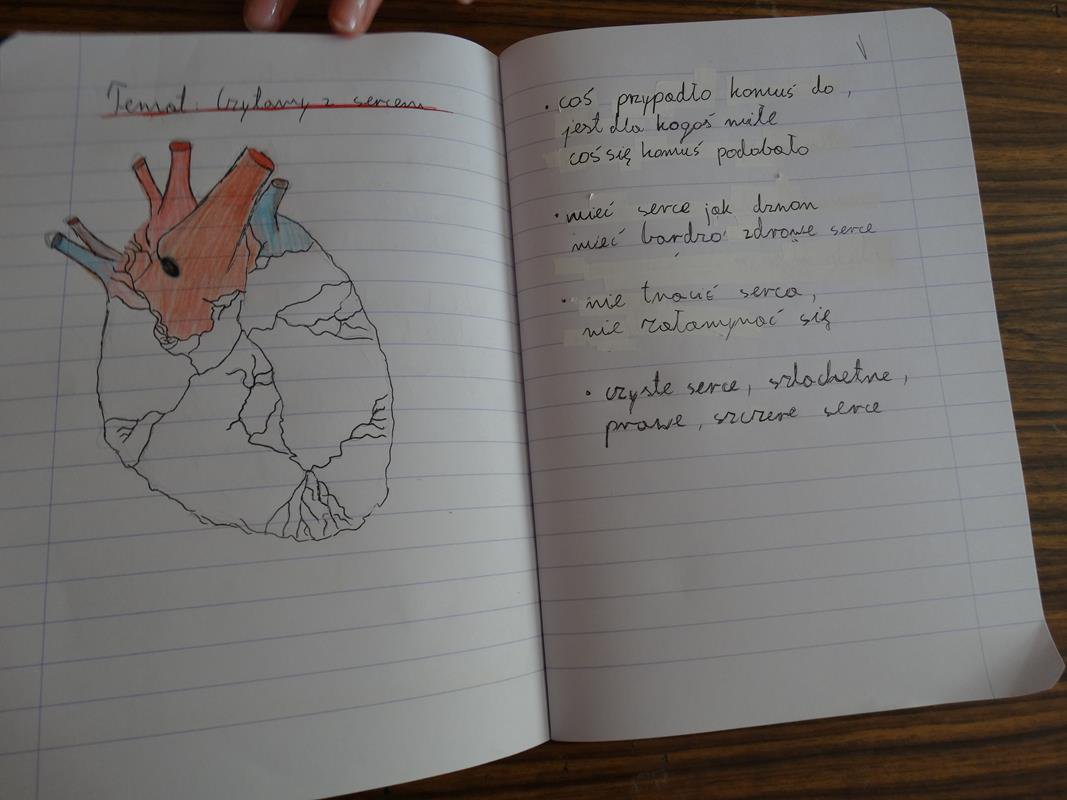 Temat: Czytamy z sercem
• coś przypadło komuś do,
jest dla kogoś miłe
coś się komuś podobało
• mieć serce jak dzwon
mieć bardzo zdrowe serce
• nie tracić serca,
nie załamywać się
• czyste serce, szlachetne,
prawe, szczere serce